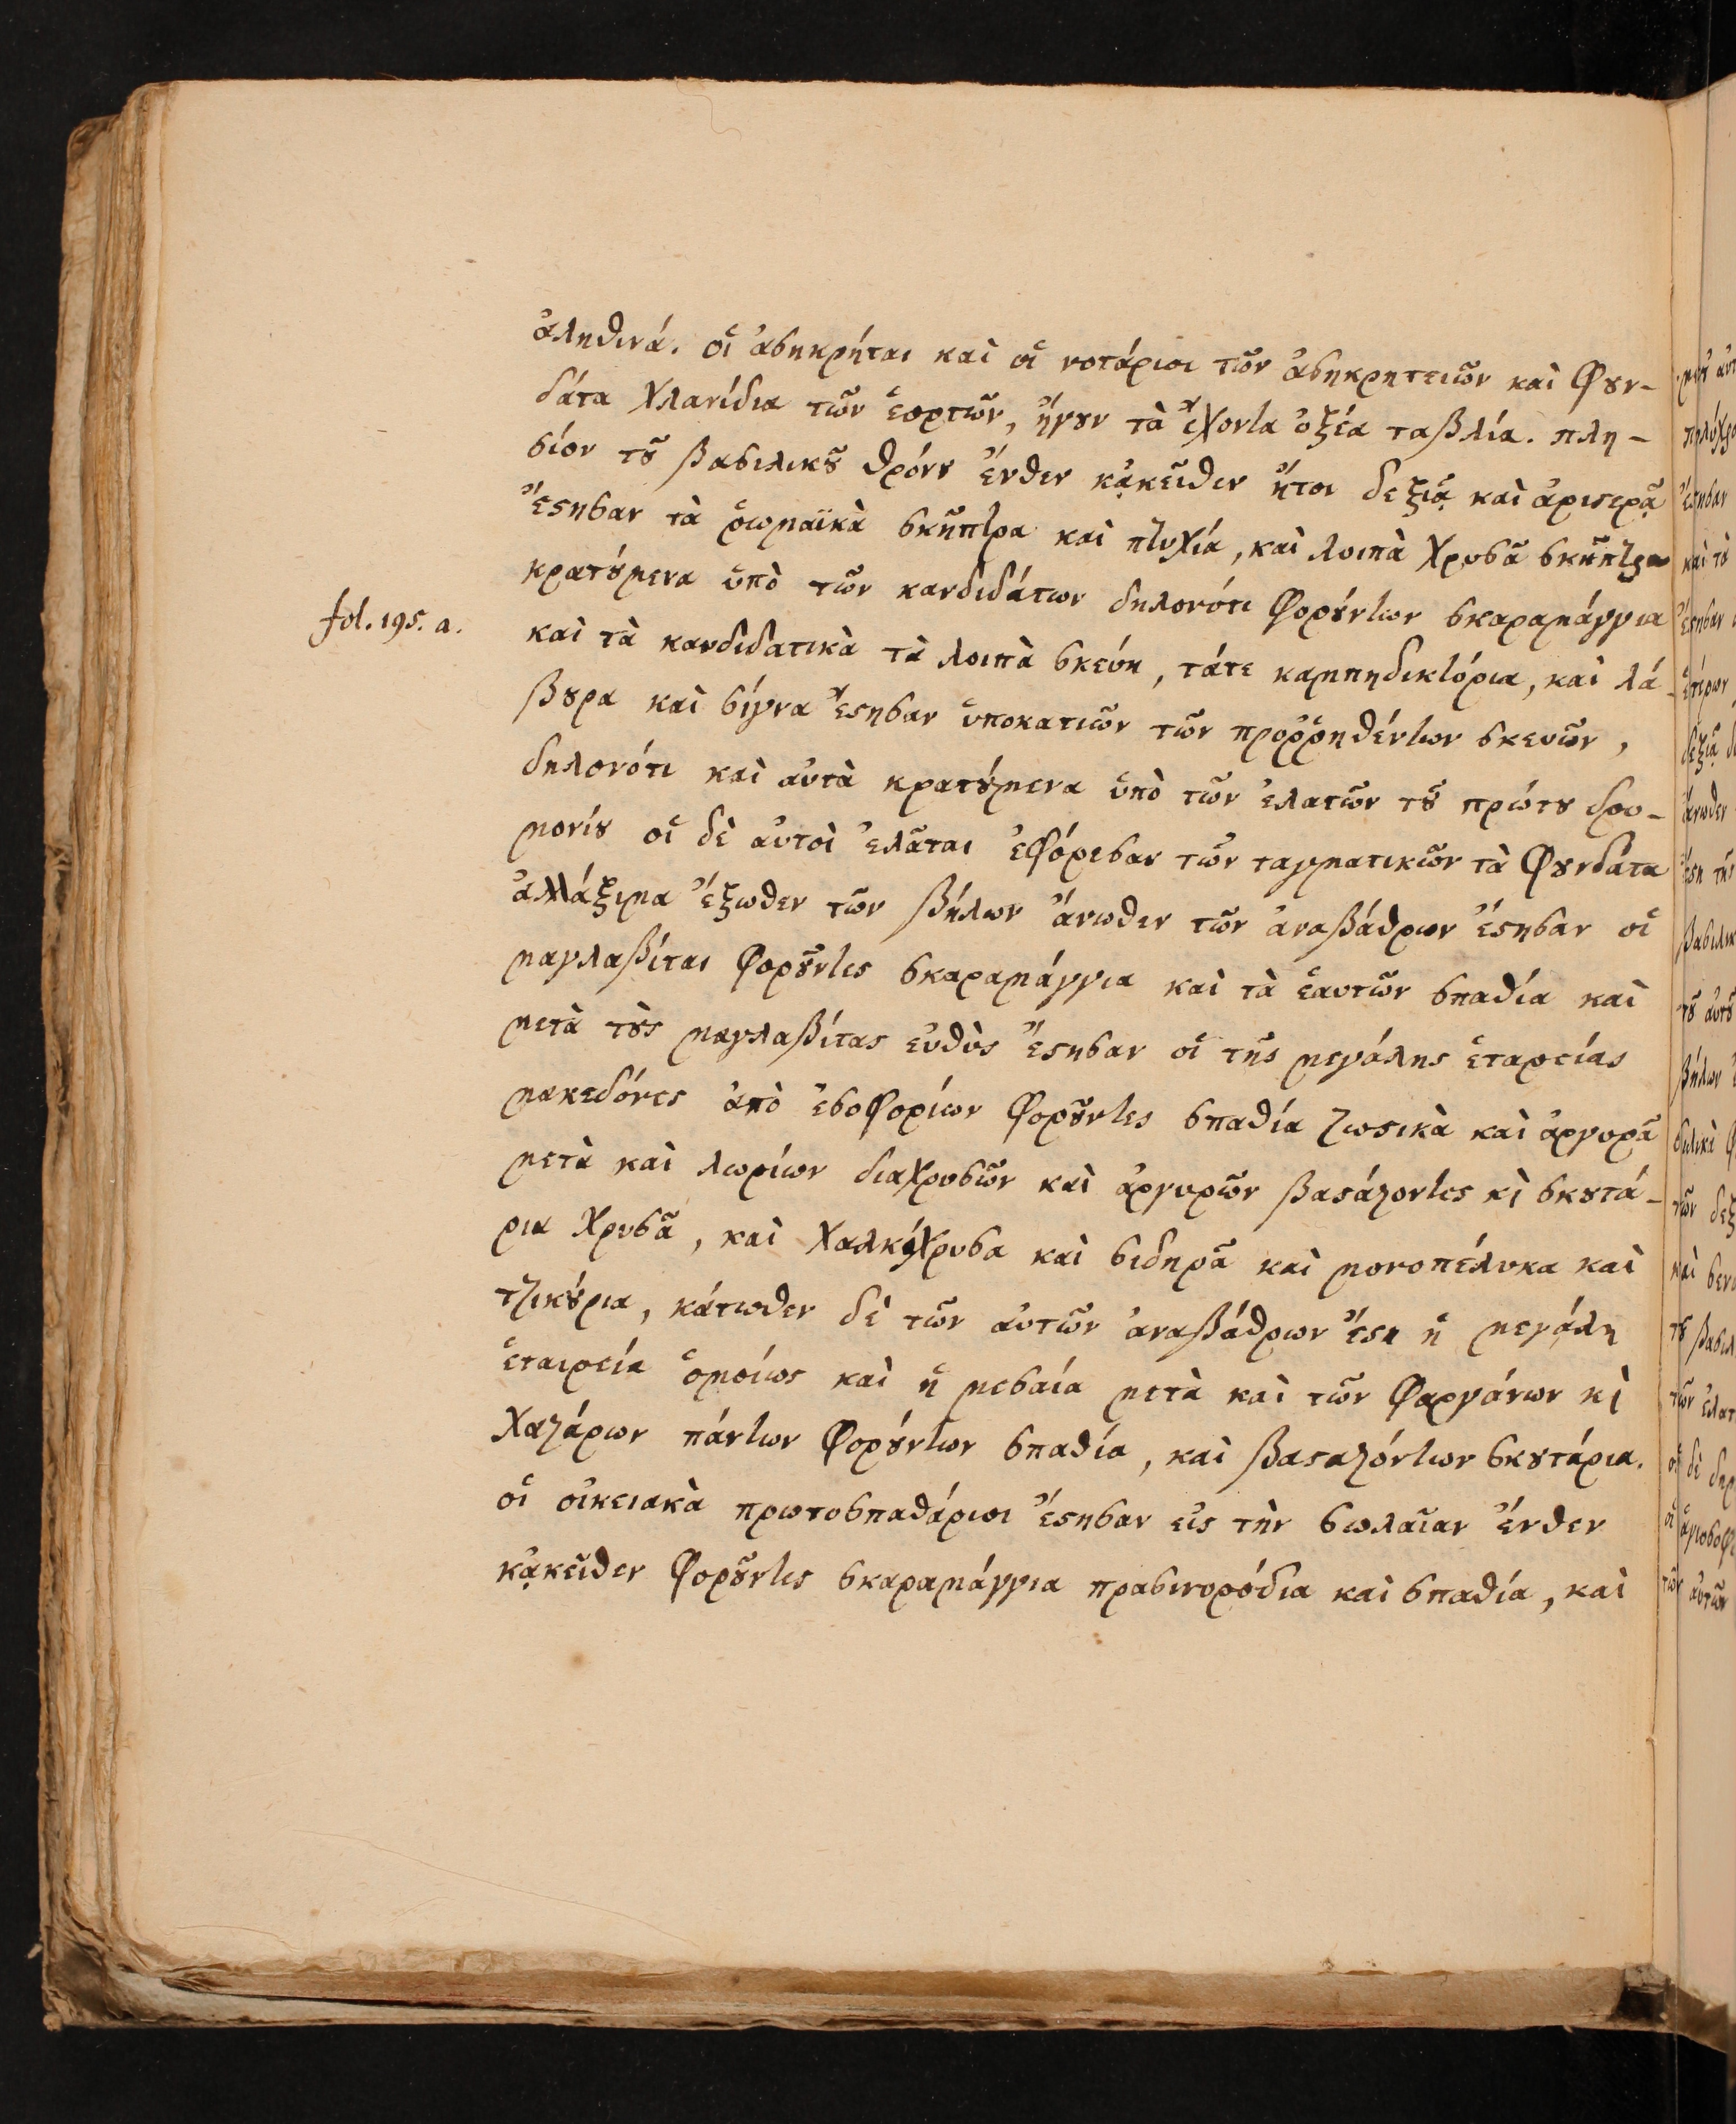 ἀληθινά. οἱ ἀσηκρήται καὶ οἱ νοτάριοι τῶν ἀσηκρητειῶν καὶ Φουν-
δάτα χλανίδια τῶν ἑορτῶν, ἤγουν τὰ ἔχοντα ὀξέα ταβλία. πλη-
σίον τοῦ βασιλικοῦ θρόνου ἔνθεν κᾀκεῖθεν ἤτοι δεξιᾷ καὶ ἀριστερᾷ
ἔστησαν τὰ ῥωμαϊκὰ σκῆπτρα καὶ πτυχία, καὶ λοιπὰ χρυσᾶ σκῆπτρα
κρατούμενα ὑπὸ τῶν κανδιδάτων δηλονότι φορούντων σκαραμάγγια
fol. 195. a.
καὶ τὰ κανδιδατικὰ τὰ λοιπὰ σκεύη, τάτε καμπηδικτόρια, καὶ λά-
βουρα καὶ σίγνα ἔστησαν ὑποκατιῶν τῶν προῤῥηθέντων σκευῶν,
δηλονότι καὶ αὐτὰ κρατούμενα ὑπὸ τῶν ἐλατῶν τοῦ πρώτου δρου-
μονίου οἱ δὲ αὐτοὶ ἐλᾶται ἐφόρεσαν τῶν ταγματικῶν τὰ Φουνδάτα
ἀλλάξιμα ἔξωθεν τῶν βήλων ἄνωθεν τῶν ἀναβάθρων ἔστησαν οἱ
μαγλαβίται φοροῦντες σκαραμάγγια καὶ τὰ ἑαυτῶν σπαθία καὶ
μετὰ τοὺς μαγλαβίτας εὐθὺς ἔστησαν οἱ τῆς μεγάλης ἑταιρείας
μακεδόνες ἀπὸ ἐσοφορίων φοροῦντες σπαθία ζωστικὰ καὶ ἀργυρᾶ
μετὰ καὶ λωρίων διαχρυσῶν καὶ ἀργυρῶν βαστάζοντες κὶ σκουτά-
ρια χρυσᾶ, καὶ χαλκόχρυσα καὶ σιδηρᾶ καὶ μονοπέλυκα καὶ
τζικούρια, κάτωθεν δὲ τῶν αὐτῶν ἀναβάθρων ἔστη ἡ μεγάλη
ἑταιρεία ὁμοίως καὶ ἡ μεσαία μετὰ καὶ τῶν Φαργάνων κὶ
Χαζάρων πάντων φορούντων σπαθία, καὶ βασταζόντων σκουτάρια.
οἱ οἰκειακὰ πρωτοσπαθάριοι ἔστησαν εἰς τὴν σωλαῖαν ἔνθεν
κᾀκεῖθεν φοροῦντες σκαραμάγγια πρασινορόδια καὶ σπαθία, καὶ